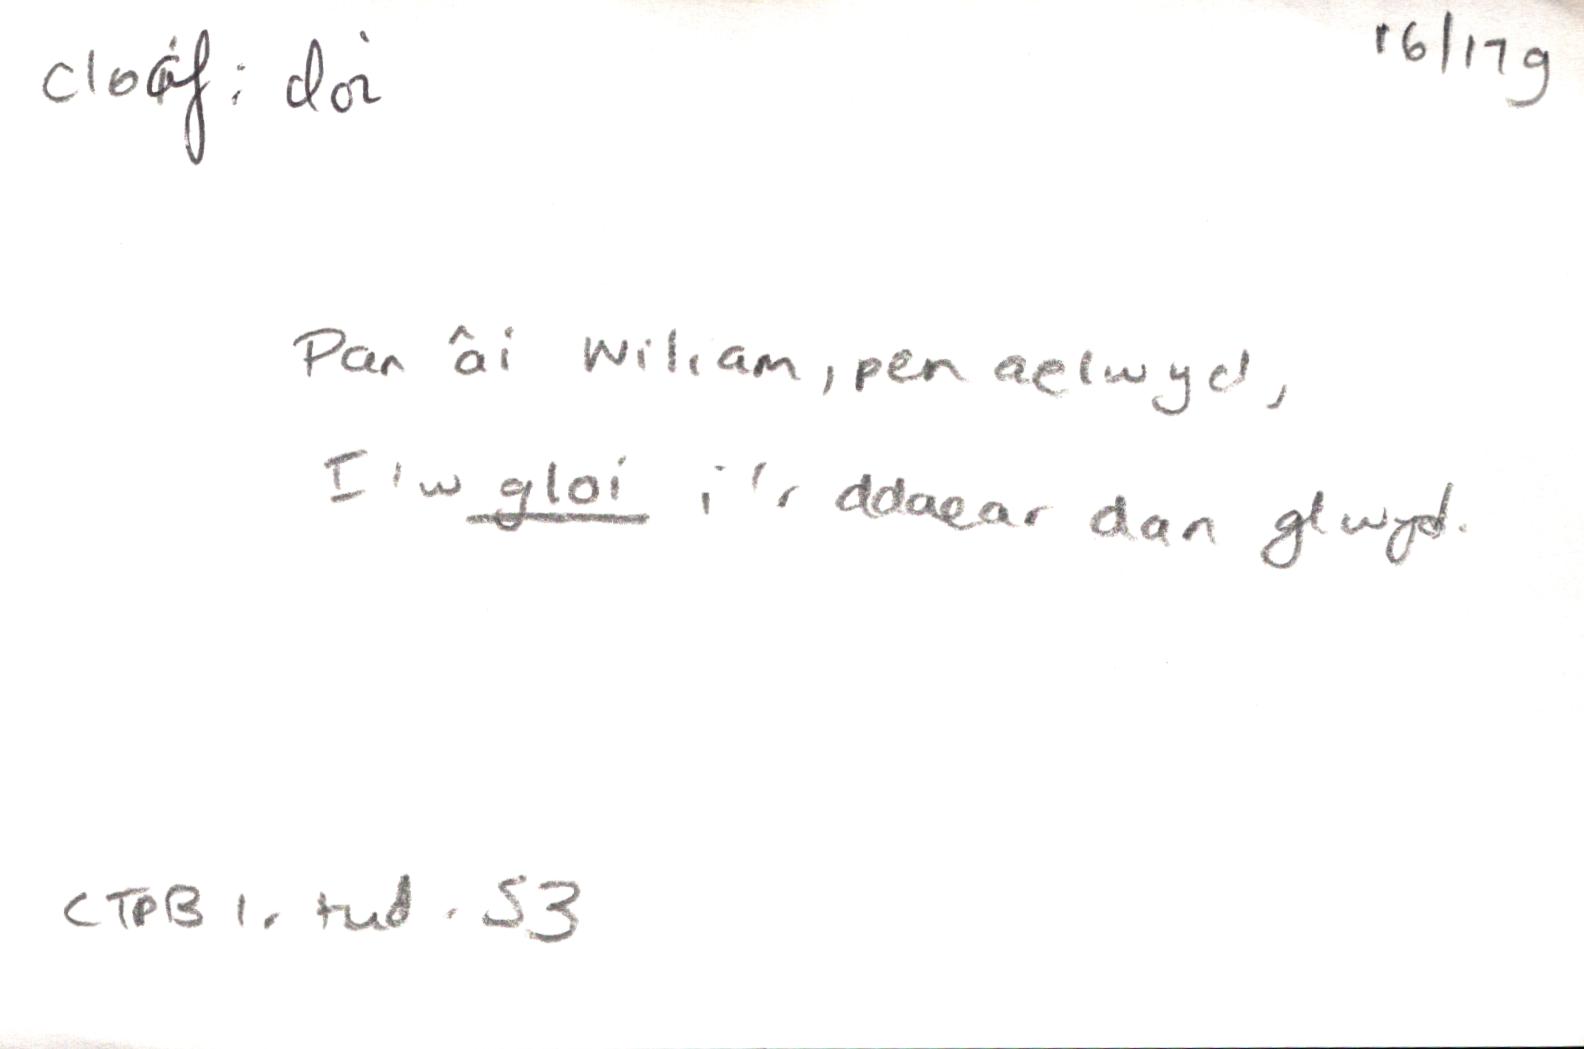 cloaf: cloi
16/17g
Pan âi Wiliam, pen aelwyd,
I'w gloi i'r ddaear dan glwyd.
CTPB 1. tud. 53